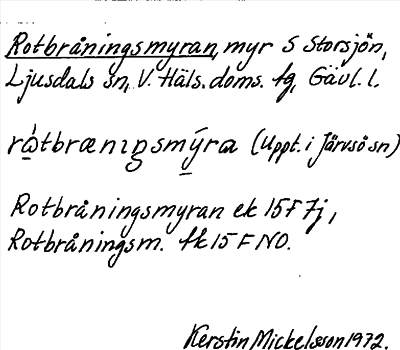 Rotbråningsmyran, myr S Storsjön,
Ljusdals sn, V. Häls. doms. fg, Gävl. l.
ròtbrænıŋsmý̱ra (Uppt. i Järvsö sn)
Rotbråningsmyran ek 15F 7j,
Rotbråningsm. fk 15 F NO.
Kerstin Mickelsson 1972.